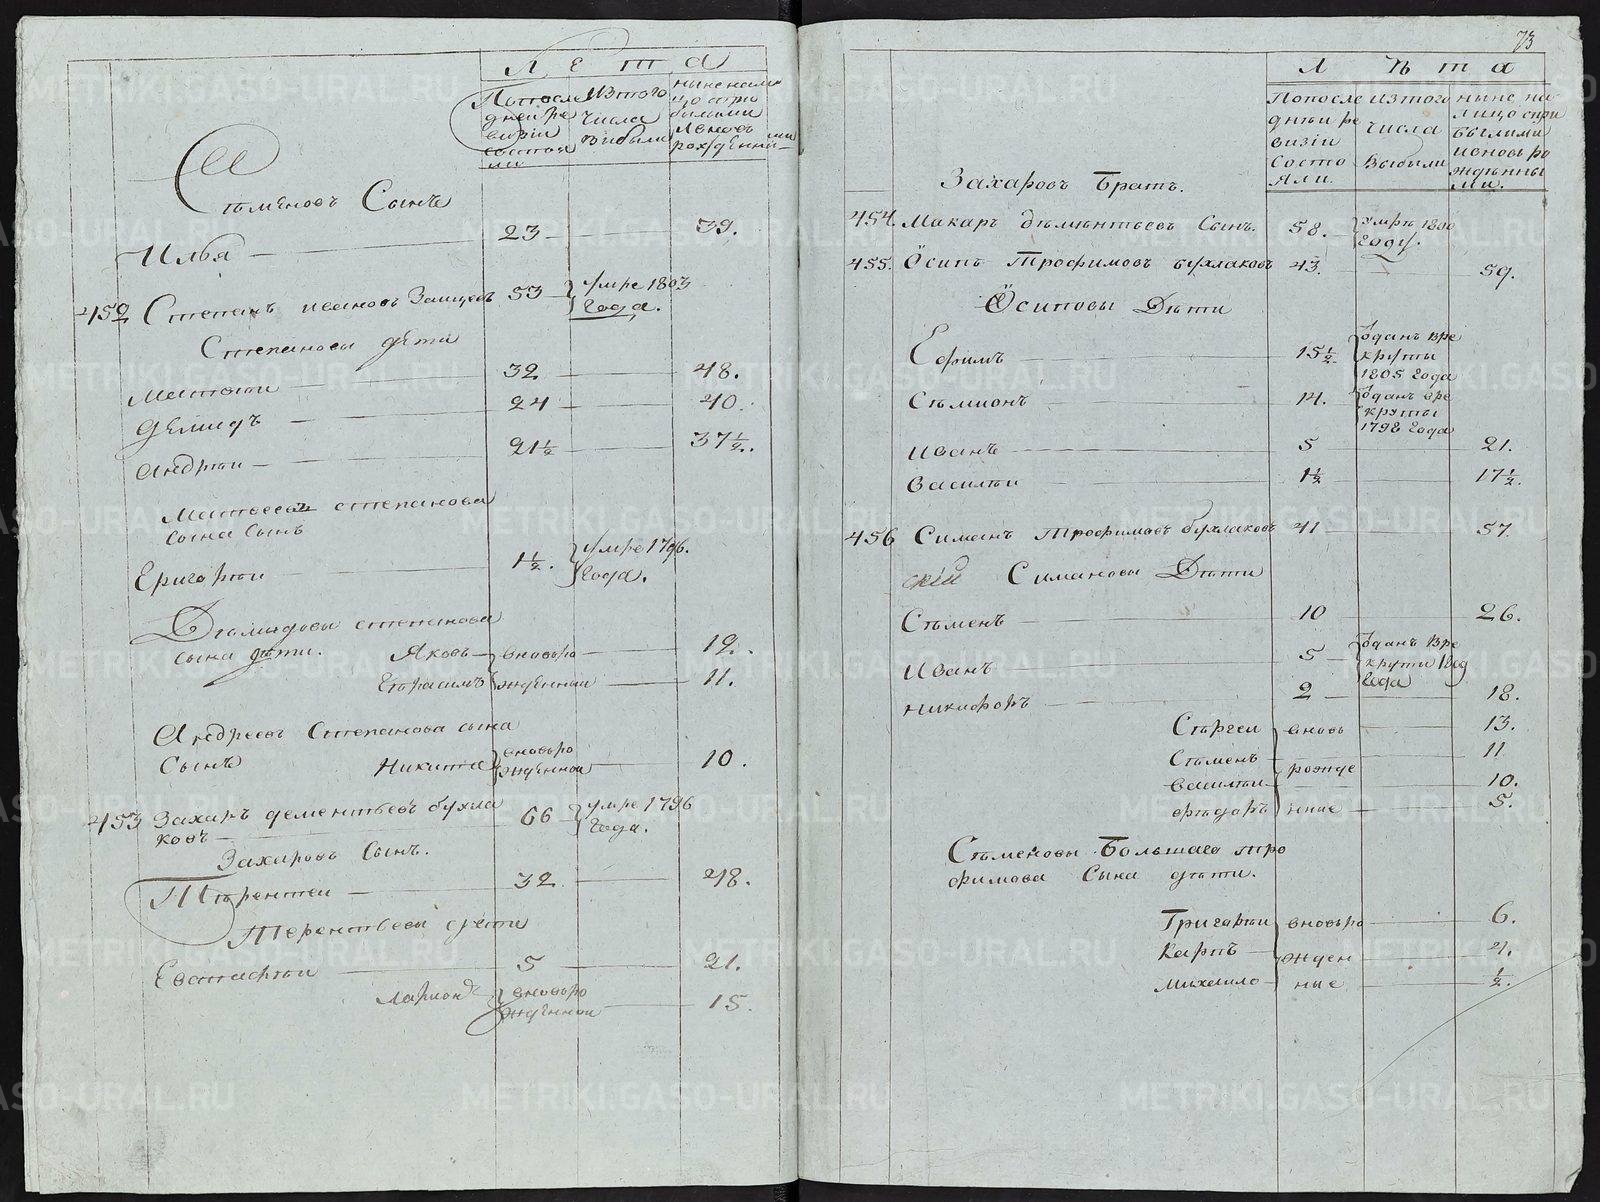 Лета
По после
дней ре
визіи
состоя
ли
Изтого
числа
выбыли
ныне нали
цо спри
былыми
рожденны
ми
Стьменовъ Сынъ
Илья 23 39.
452 Степанъ ивановъ Заицовъ 53 умре 1803
года.
Степановы дети
Матвеи 32 48.
Демидъ 24 40.
андрѣи 21½ 37½.
Матвеевъ степанова
сына Сынъ
Григорѣи 1½. умре 1796.
года.
Дѣмидовы степанова
сына дѣти. Яковъ вновьро 19.
Герасимъ жденныи 11.
Андреевъ Степанова сына
Сынъ Никита вновьро
жденнои 10.
453 Захаръ дементьевъ бухла 66 умре 1796
ковъ года.
Захаровъ Сынъ.
Тѣрентеи 32 48.
Терентьевы дети
Евстафѣи 5 21.
Ларионъ вновьро
жденнои 15.
73
Лѣта
Попосле
днѣи ре
визіи
состо
яли.
изтого
числа
выбыли
ныне на
лицо спри
бѣглыми
ивновь ро
жденны
ми.
Захаровъ Братъ.
454. Макаръ дѣмѣнтьевъ Сынъ. 58. умрѣ 1800
году.
455. Осипъ Трофимовъ бухлаковъ 43. 59.
Осиповы Дѣти
Ефимъ 15½ одан вре
круты
1805 года
Сѣмионъ 14. оданъ вре
круты
1798 года
Иванъ 5 21.
Василѣи 1½ 17½.
456 Симанъ Трофимовъ бухлаковъ 41 57.
скій Симановы Дѣти
Сѣменъ 10 26.
Иванъ 5 оданъ вре
крути 1809
года
Никифоръ 2 18.
Сѣргеи вновь 13.
Сѣменъ 11
василѣи рожде 10.
фѣдоръ ниие 5.
Сѣменовы Большаго тро
фимова Сына дѣти.
Григорѣи вновьро 6.
Карпъ жден 4.
Михаило ные ½.
METRIKI.GASO-URAL.RU